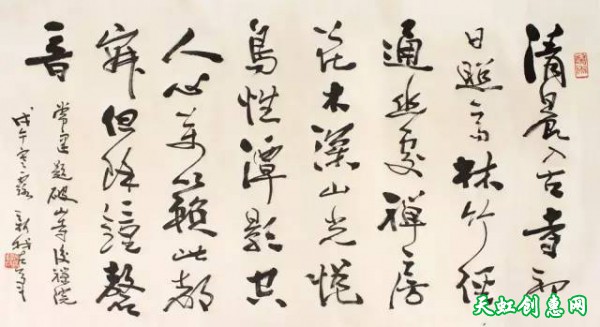 清晨入古寺初
日照高林竹徑
通幽處禪房
花木深山光悅
鳥性潭影空
人心萬籟此都
寂但餘鐘磬
音
常建題破山寺後禪院
戊午寒露
天虹创惠网